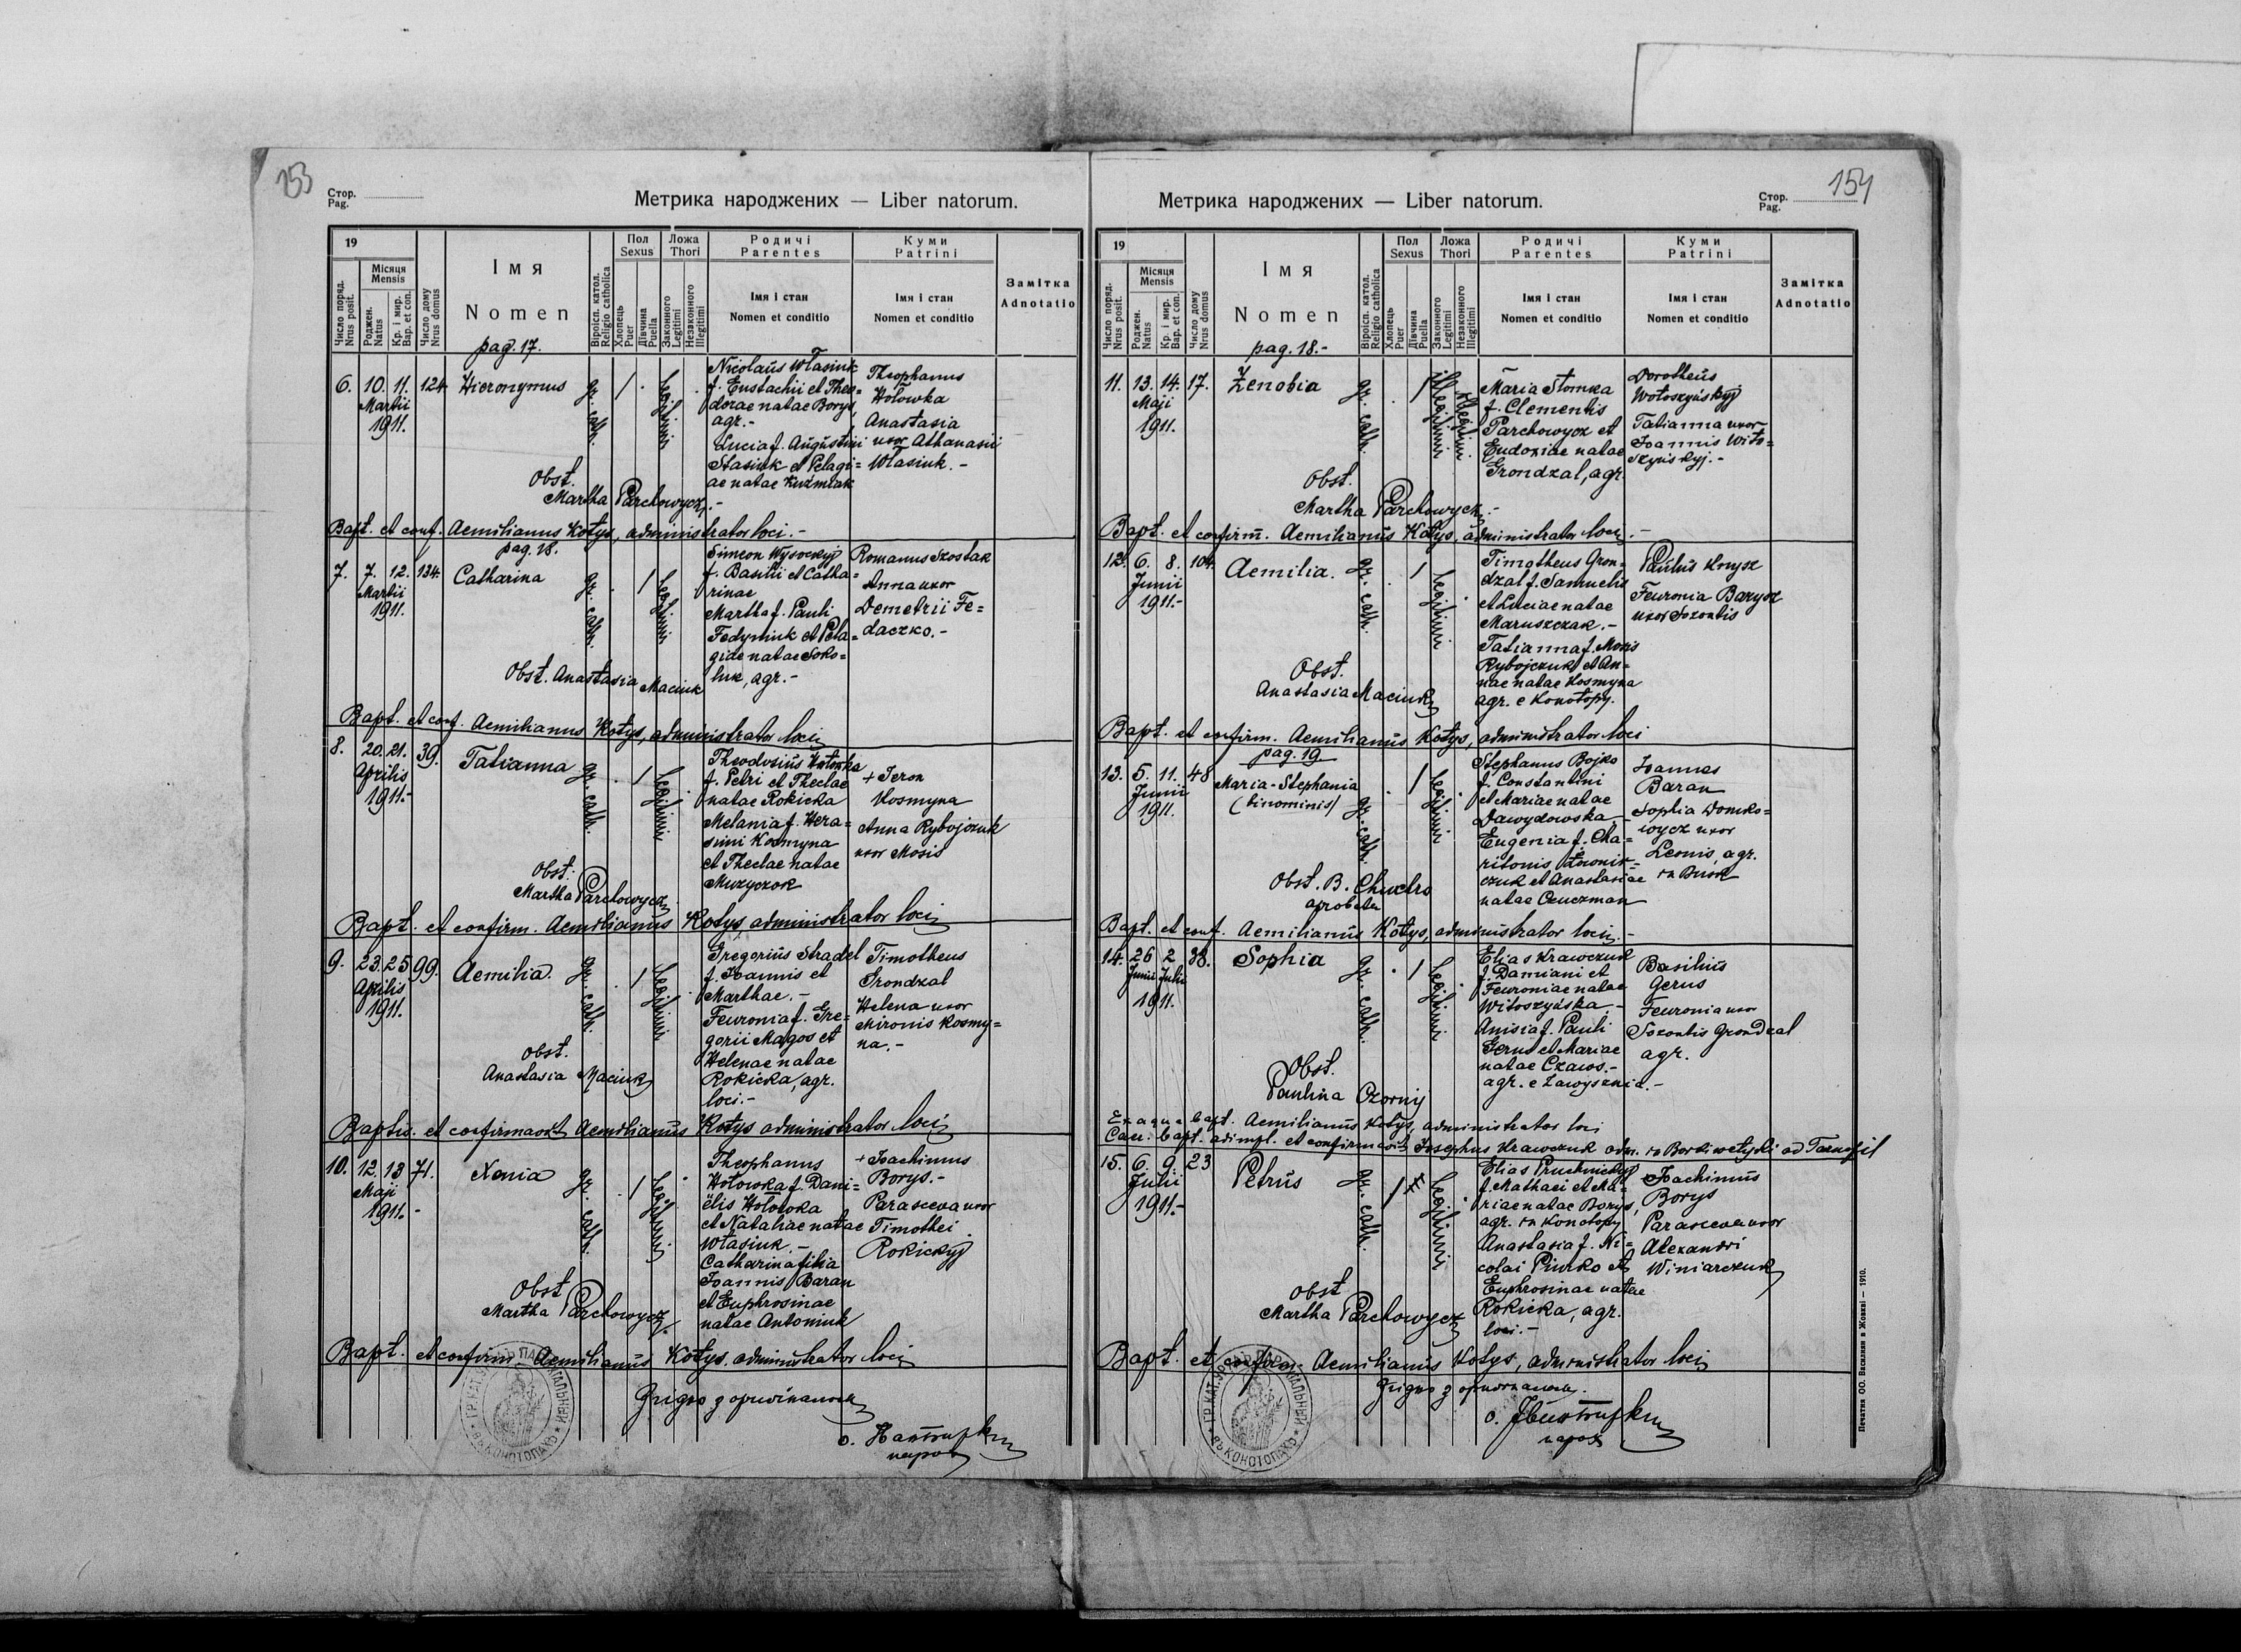 153
Стор.
Pag.
Метрика народжених — Liber natorum.
19
Число поряд.
Nrus posit.
Місяця
Mensis
Роджен.
Natus
Кр. і мир.
Bap. et con.
Число дому
Nrus domus
Імя
Nomen
Віроісп. катол.
Religio catholica
Пол
Sexus
Хлопець
Puer
Дівчина
Puella
Ложа
Thori
Законного
Legitimi
Незаконного
Illegitimi
Родичі
Parentes
Імя і стан
Nomen et conditio
Куми
Patrini
Імя і стан
Nomen et conditio
Замітка
Adnotatio
pag. 17.
6. 10. 11. 124. Hieronymus
Martii
1911.
gr. cath.
legitimi
Nicolaus Własiuk
f. Eustachii et Theo=
dorae natae Borys,
agr.-
Lucia f. Augustini
Stasiuk et Pelagi=
ae natae Kuźmiak
Theophanus
Hołowka
Anastasia
uxor Athanasii
Własiuk.-
Obst.
Martha Parchowycz.-
Bapt. et conf. Aemilianus Kotys, administrator loci.-
pag. 18.
7. 7. 12. 134. Catharina
Martii
1911.
gr. cath.
legitimi
Simeon Wysockyj
f. Basilii et Catha=
rinae
Martha f. Pauli
Fedyniuk et Pela=
giae natae Soko=
luk, agr.-
Romanus Szostak
Anna uxor
Demetrii Fe=
daczko.-
Obst. Anastasia Maciuk
Bapt. et conf. Aemilianus Kotys, administrator loci
8. 20. 21. 39. Tatianna
Aprilis
1911.-
gr. cath.
legitimi
Theodosius Hołowka
f. Petri et Theclae
natae Rokicka
Melania f. Hera=
simi Kosmyna
et Theclae natae
Muzyczok
+ Jeron
Kosmyna
Anna Rybojczuk
uxor Mosis
Obst.
Martha Parchowycz
Bapt. et confirm. Aemilianus Kotys administrator loci
9. 23. 25 99. Aemilia.
Aprilis
1911.
gr. cath.
legitimi
Gregorius Stradel
f. Joannis et
Marthae.-
Feuronia f. Gre=
gorii Magos et
Helenae natae
Rokicka, agr.
loci.-
Timotheus
Grondzal
Helena uxor
Mironis Kosmy=
na.-
Obst.
Anastasia Maciuk
Baptis. et confirmavit Aemilianus Kotys administrator loci
10. 12. 13 71. Xenia
Maji
1911.-
gr. cath.
legitimi
Theophanus
Hołowka f. Dani=
ëlis Hołowka
et Nataliae natae
Własiuk.-
Catharina filia
Joannis Baran
et Euphrosinae
natae Antoniuk
+ Joachimus
Borys.-
Parasceva uxor
Timothei
Rokickyj
Obst.
Martha Parchowycz.
Bapt. et confirm. Aemilianus Kotys administrator loci
ВЪ КОНОТОПАХЪ
парох
154
Стор.
Pag.
Метрика народжених — Liber natorum.
19
Число поряд.
Nrus posit.
Місяця
Mensis
Роджен.
Natus
Кр. і мир.
Bap. et con.
Число дому
Nrus domus
Імя
Nomen
Віроісп. катол.
Religio catholica
Пол
Sexus
Хлопець
Puer
Дівчина
Puella
Ложа
Thori
Законного
Legitimi
Незаконного
Illegitimi
Родичі
Parentes
Імя і стан
Nomen et conditio
Куми
Patrini
Імя і стан
Nomen et conditio
Замітка
Adnotatio
pag. 18.-
11. 13. 14. 17. Zenobia
Maji
1911.
gr. cath.
illegitimi
illegitimi
Maria Stomka
f. Clementis
Parchowycz et
Eudoxiae natae
Grondzal, agr.
Dorotheus
Wołoszyńskyj
Tatianna uxor
Joannis Wito=
szyńskyj.-
Obst.
Martha Parchowycz.-
Bapt. et confirm. Aemilianus Kotys, administrator loci.-
12. 6. 8. 104. Aemilia.
Junii
1911.-
gr. cath.
legitimi
Timotheus Gron=
dzal f. Samuelis
et Luciae natae
Maruszczak.-
Tatianna f. Mosis
Rybojczuk et An=
nae natae Kosmyna
agr. e Konotopy.
Paulus Knysz
Feuronia Barysz
uxor Sozontis
Obst.
Anastasia Maciuk
Bapt. et confirm. Aemilianus Kotys, administrator loci
pag. 19
13. 5. 11. 48 Maria-Stephania
Junii (binominis)
1911.
gr. cath.
legitimi
Stephanus Bojko
f. Constantini
et Mariae natae
Dawydowska.-
Eugenia f. Cha=
ritonis
czuk et Anastasiae
natae Ceuczman
Joannes
Baran
Sophia Domko=
wycz uxor
Leonis, agr.
Obst. B. Chuchro
aprobata
Bapt. et conf. Aemilianus Kotys, administrator loci.-
14. 26 2 38. Sophia
Junii Julii
1911.
gr. cath.
legitimi
Elias Krawczuk
f. Damiani et
Feuroniae natae
Witoszyńska.-
Anisia f. Pauli
Gerus et Mariae
natae Czaws.-
agr. e Zawysznia.-
Basilius
Gerus
Feuronia uxor
Sozontis Grondzal
agr.
Obst.
Paulina Czornij
Ex aqua bapt. Aemilianus Kotys, administrator loci
Caer. bapt. adimpl. et confirmavit Josephus Krawczuk adm. ad
15. 6. 9. 23 Petrus
Julii
1911.-
gr. cath.
legitimi
Elias Pruchnickyj
f. Mathaei et Ma=
riae natae Borys,
agr. in Konotopy
Anastasia f. Ni=
colai Piurko et
Euphrosinae natae
Rokicka, agr.
loci.-
Joachimus
Borys
Parasceva uxor
Alexandri
Winiarczuk
Obst.
Martha Parchowycz
Bapt. et confirm. Aemilianus Kotys, administrator loci
ВЪ КОНОТОПАХЪ
парох
Печатня ОО. Василиян в Жовкві — 1910.